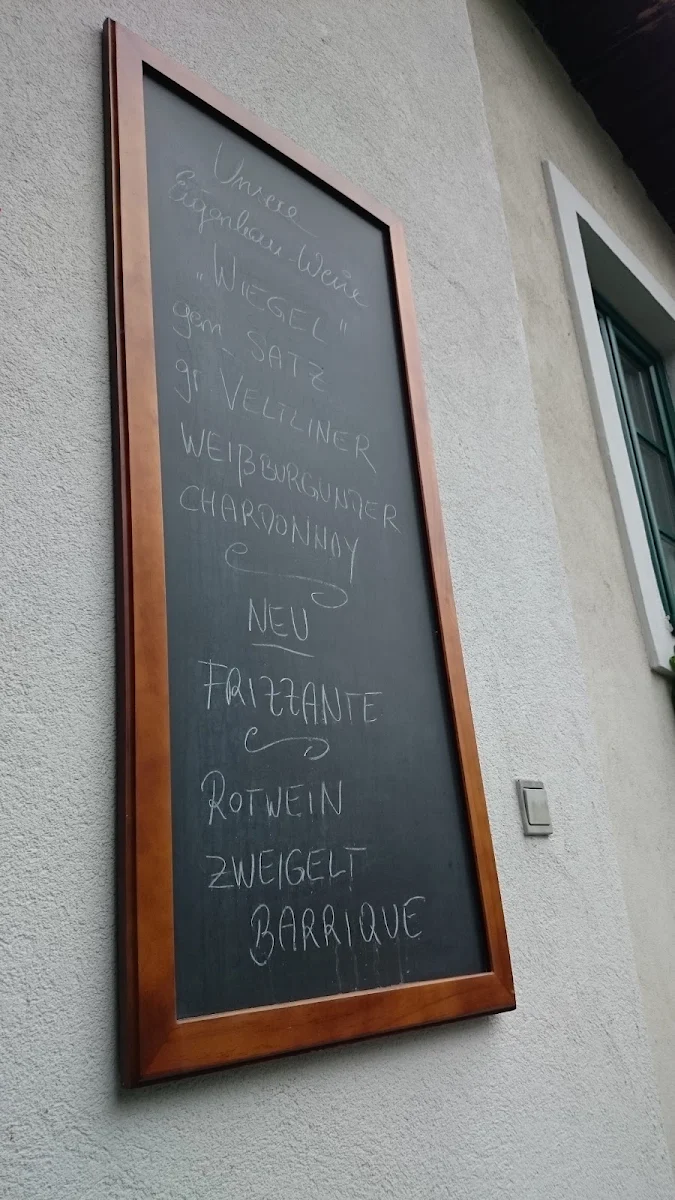 Unsere
Eigenbau-Weine
„WIEGEL"
gem. SATZ
gr VELTLINER
WEIßBURGUNDER
CHARDONNAY
NEU
FRIZZANTE
ROTWEIN
ZWEIGELT
BARRIQUE